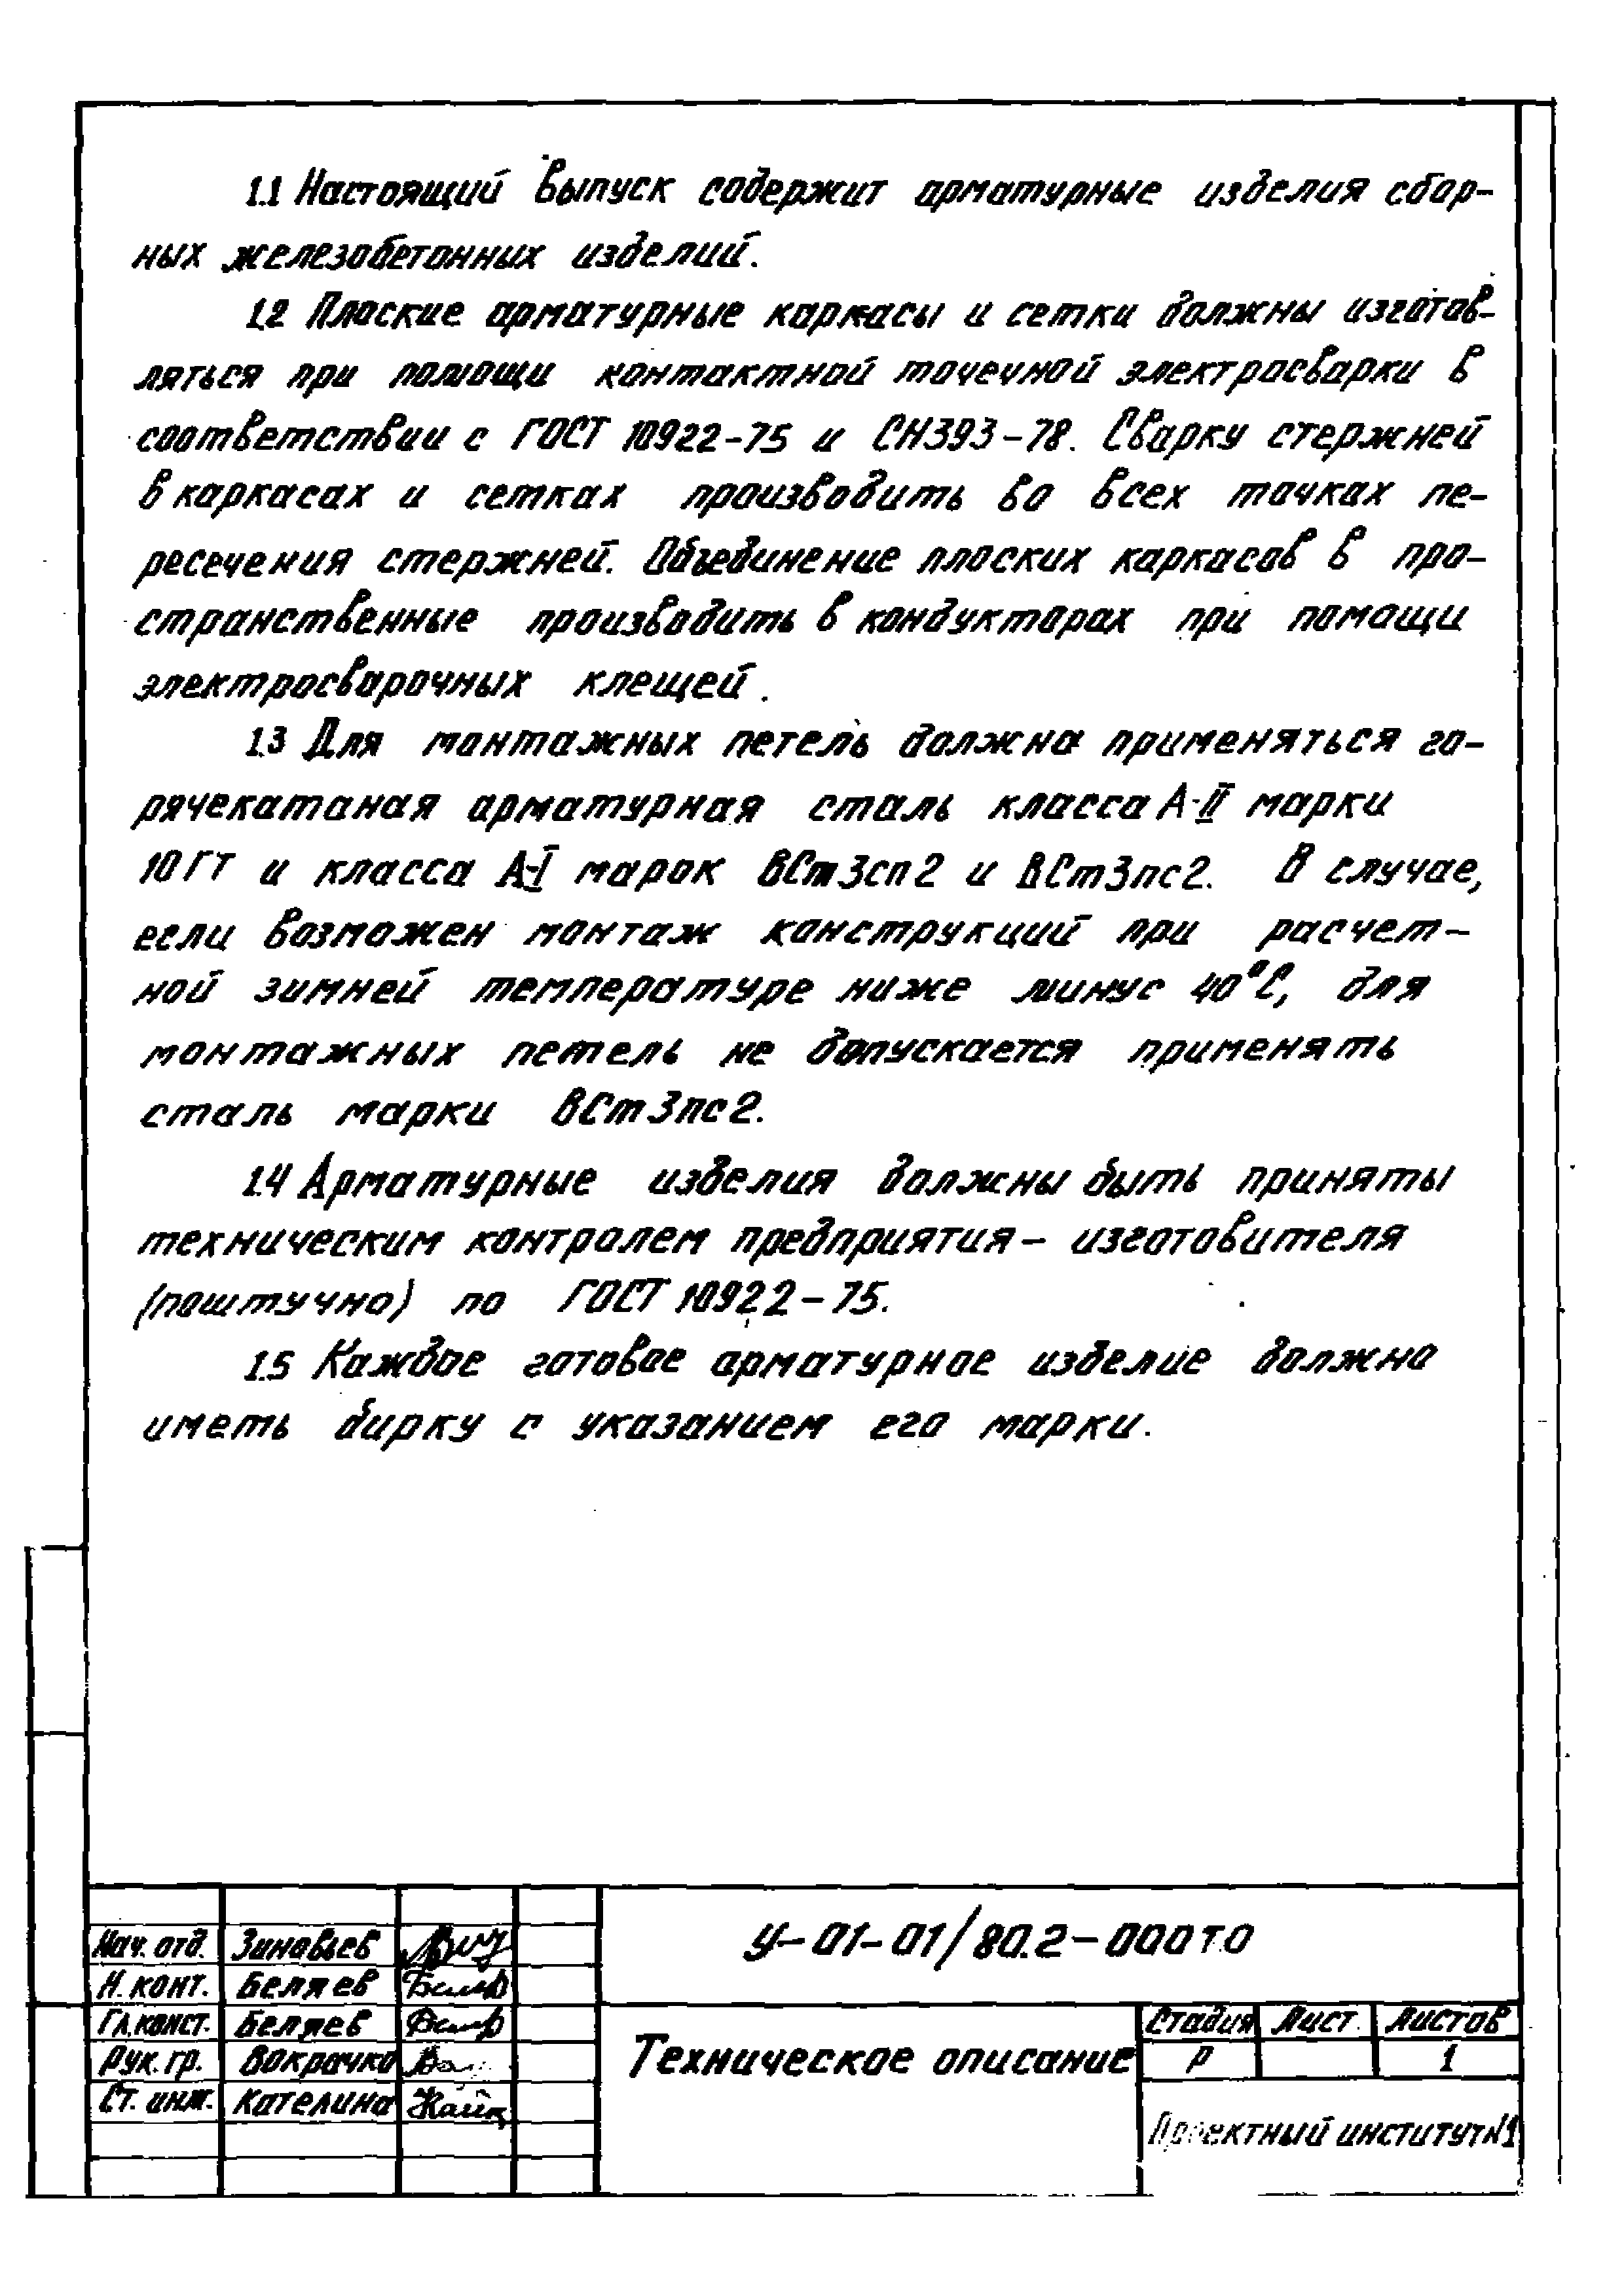 1.1 Настоящий выпуск содержит арматурные изделия сбор-
ных железобетонных изделий.
1.2 Плоские арматурные каркасы и сетки должны изготов-
ляться при помощи контактной точечной электросварки в
соответствии с ГОСТ 10922-75 и СН393-78. Сварку стержней
в каркасах и сетках производить во всех точках пе-
ресечения стержней. Объединение плоских каркасов в про-
странственные производить в кондукторах при помощи
электросварочных клещей.
1.3 Для монтажных петель должна применяться го-
рячекатаная арматурная сталь класса А-II марки
10ГТ и класса А-I марок ВСт3сп2 и ВСт3пс2. В случае,
если возможен монтаж конструкций при расчет-
ной зимней температуре ниже минус 40°С, для
монтажных петель не допускается применять
сталь марки ВСт3пс2.
1.4 Арматурные изделия должны быть приняты
техническим контролем предприятия - изготовителя
(поштучно) по ГОСТ 10922-75.
1.5 Каждое готовое арматурное изделие должно
иметь бирку с указанием его марки.
Нач. отд. Зиновьев
Н. конт. Беляев
Гл. конст. Беляев
Рук. гр. Вокрачко
Ст. инж. Кателина
У-01-01/80.2-000ТО
Техническое описание
Стадия Лист Листов
Р 1
Проектный институт №1